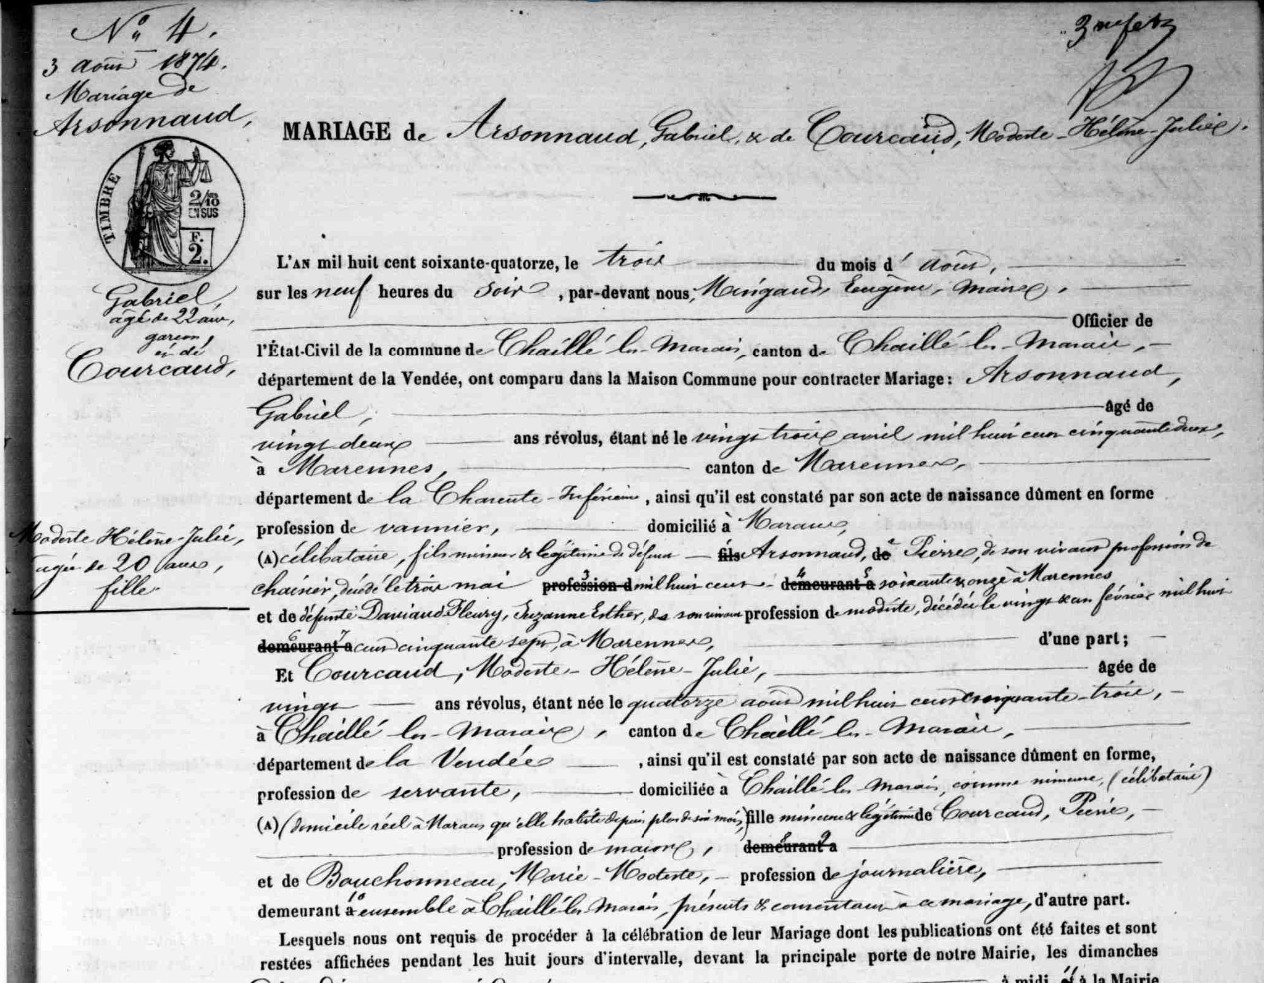 N° 4.
3 août 1874.
Mariage de
Arsonnaud,
TIMBRE
2/10
EN SUS
F.
2.
Gabriel,
âgé de 22 ans,
garçon,
et de
Courcaud,
Modeste Hélène-Julie,
âgée de 20 ans,
fille
MARIAGE de Arsonnaud, Gabriel, & de Courcaud, Modeste-Hélène-Julie.
L'AN mil huit cent soixante-quatorze, le trois du mois d'août,
sur les neuf heures du soir, par-devant nous, Mingaud, Eugène, maire,
Officier de
l'État-Civil de la commune de Chaillé-les-Marais, canton de Chaillé-les-Marais,
département de la Vendée, ont comparu dans la Maison Commune pour contracter Mariage: Arsonnaud,
Gabriel, âgé de
vingt deux ans révolus, étant né le vingt trois avril mil huit cent cinquante deux,
à Marennes, canton de Marennes,
département de la Charente-Inférieure, ainsi qu'il est constaté par son acte de naissance dûment en forme
profession de vannier, domicilié à Marans,
(A) célibataire, fils mineur & légitime de défunt fils Arsonnaud, de Pierre, de son vivant profession de
chaisier, décédé le trois mai profession d mil huit cent demeurant à soixante & onze à Marennes
et de défunte Daviaud Fleury, Suzanne Esther, de son vivant profession de modiste, décédée le vingt & un février mil huit
demeurant à cent cinquante sept, à Marennes, d'une part;
Et Courcaud, Modeste-Hélène-Julie, âgée de
vingt ans révolus, étant née le quatorze août mil huit cent cinquante-trois,
à Chaillé-les-Marais, canton de Chaillé-les-Marais,
département de la Vendée, ainsi qu'il est constaté par son acte de naissance dûment en forme,
profession de servante, domiciliée à Chaillé-les-Marais, comme mineure, (célibataire)
(A) (domicile réel à Marans qu'elle habite depuis plus de six mois,) fille mineure & légitime de Courcaud, Pierre,
profession de maçon, demeurant à
et de Bouchonneau, Marie-Modeste, profession de journalière,
demeurant à ensemble à Chaillé-les-Marais, présents & consentant à ce mariage, d'autre part.
Lesquels nous ont requis de procéder à la célébration de leur Mariage dont les publications ont été faites et sont
restées affichées pendant les huit jours d'intervalle, devant la principale porte de notre Mairie, les dimanches
à midi, et à la Mairie